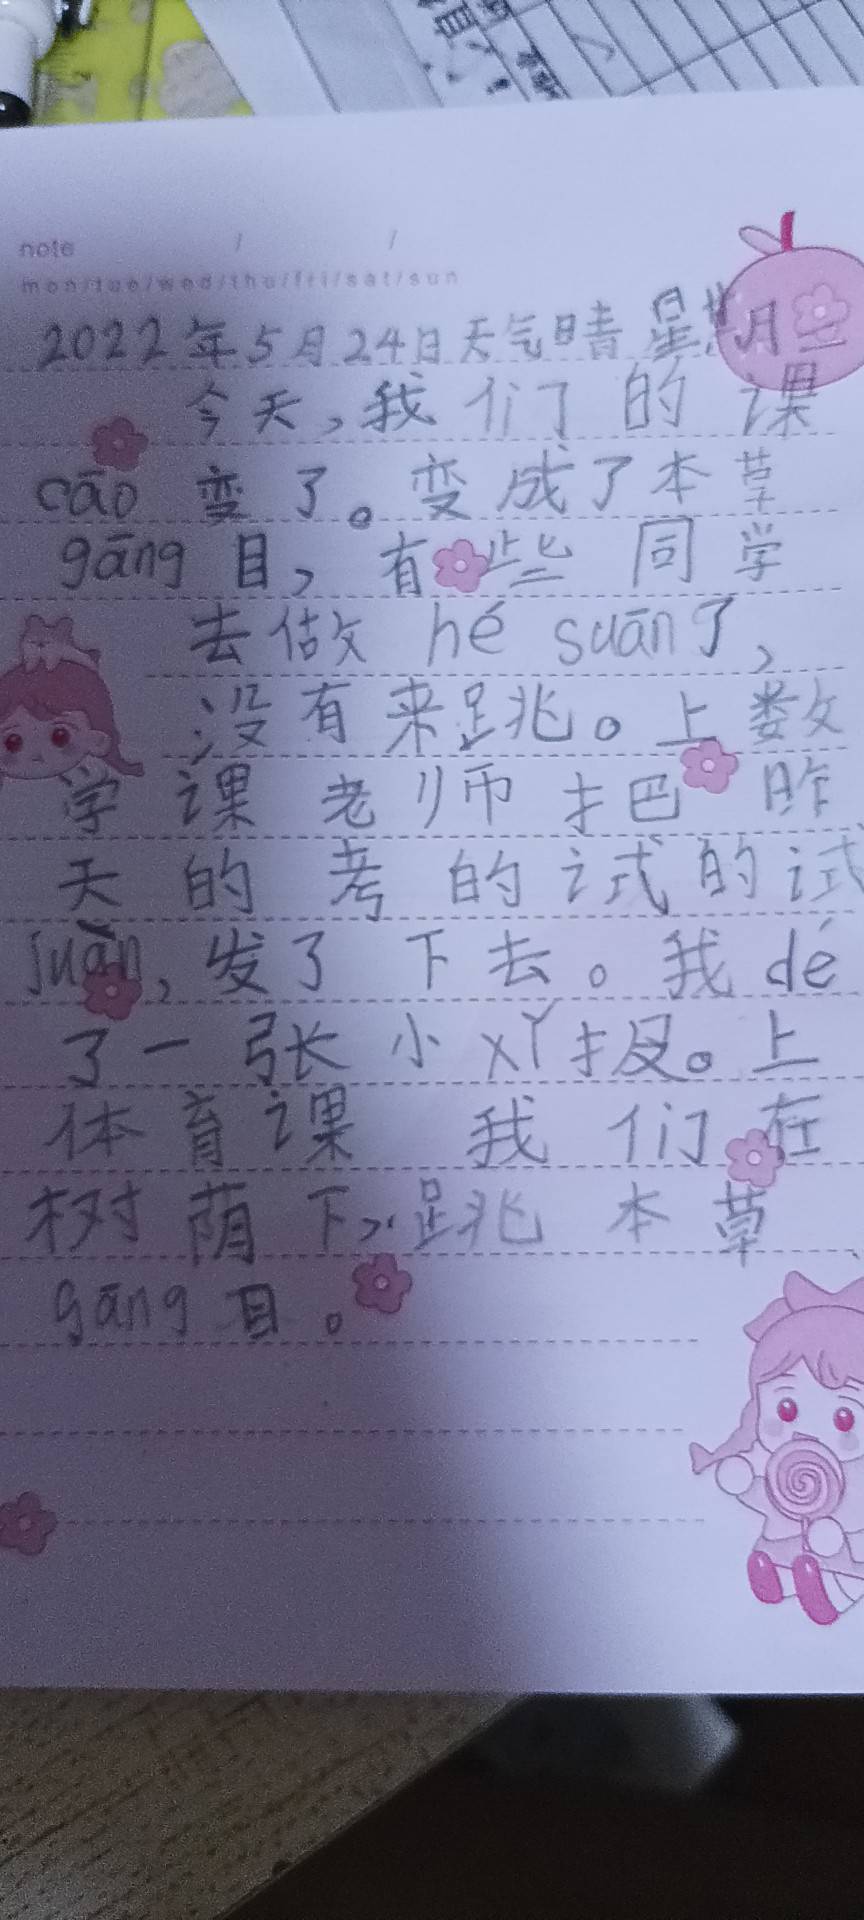 note / /
mon/tue/wed/thu/fri/sat/sun
2022年5月24日天气晴 星期二
今天,我们的课
cāo 变了。变成了本草
gāng目,有些同学
去做 hé suān了,
没有来跳。上数
学课老师把昨
天的考的试的试
juàn,发了下去。我 dé
了一张小 xǐ报。上
体育课 我们在
树荫下,跳本草
gāng目。